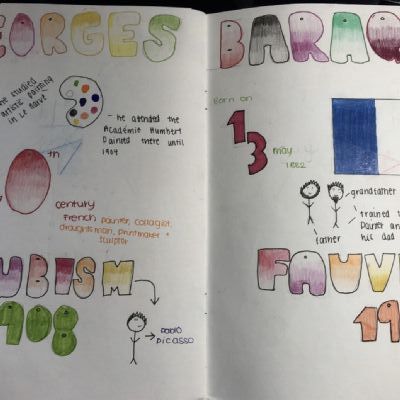 EORGES
he studied
artistic painting
in Le Havre
- he attended the
Académie Humbert
Painted there until
1904
0
th
century
French painter, collagist,
draughtsman, printmaker +
sculptor
UBISM
908
Pablo
Picasso
BARAQ
Born on
13
may
1882
grandfather
trained t
Painter an
his dad
father
FAUVI
19